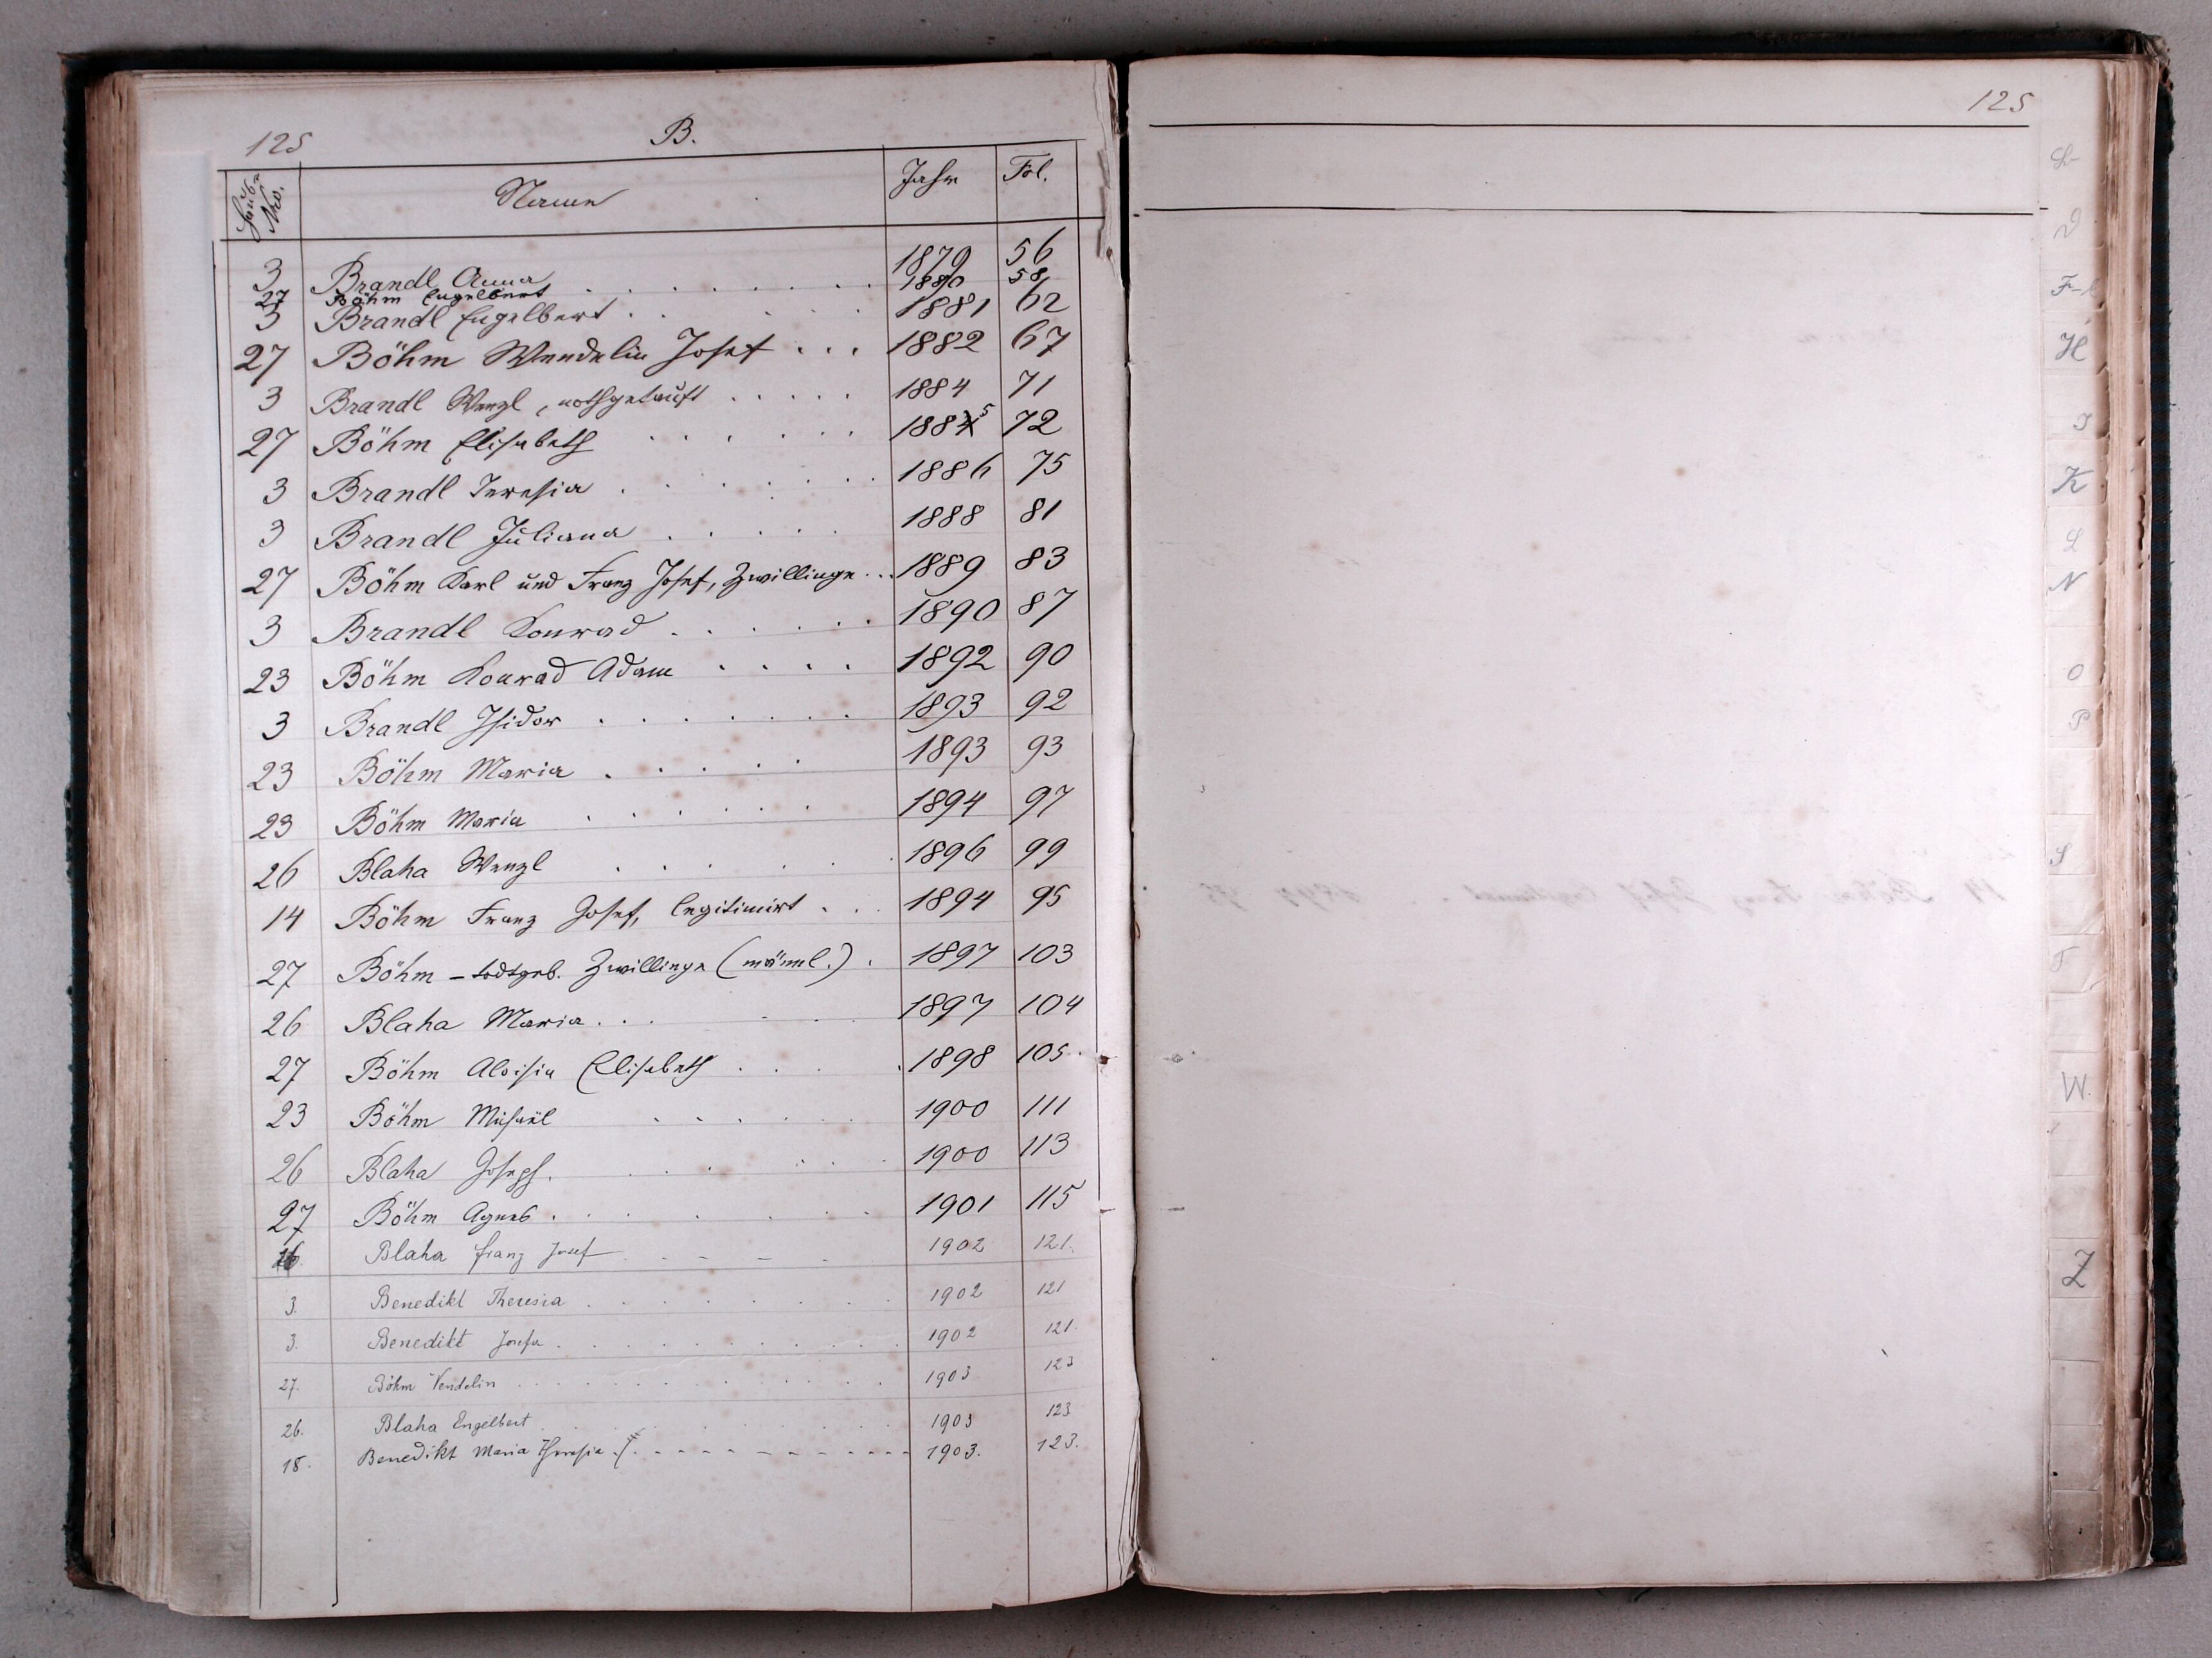 125
B.
Haus-Nro. Name Jahr Fol.
3 Brandl Anna . . . . . . . . 1879 56
27 Böhm Engelbert 1880 58
3 Brandl Engelbert . . . . . 1881 62
27 Böhm Wendelin Josef . . . 1882 67
3 Brandl Wenzl, nothgetauft . . . . . 1884 71
27 Böhm Elisabeth . . . . . . 1885 72
3 Brandl Teresia . . . . . . . 1886 75
3 Brandl Juliana . . . . 1888 81
27 Böhm Karl und Franz Josef, Zwillinge . . . 1889 83
3 Brandl Konrad . . . . . . 1890 87
23 Böhm Konrad Adam . . . . 1892 90
3 Brandl Isidor . . . . . . . 1893 92
23 Böhm Maria . . . . . 1893 93
23 Böhm Maria . . . . . . 1894 97
26 Blaha Wenzl . . . . . . 1896 99
14 Böhm Franz Josef, legitimirt . . . 1894 95
27 Böhm - todtgeb. Zwillinge (männl.) . 1897 103
26 Blaha Maria . . . . . 1897 104
27 Böhm Aloisia Elisabeth . . . . 1898 105.
23 Böhm Michael . . . . . 1900 111
26 Blaha Joseph. . . . . . . 1900 113
27 Böhm Agnes . . . . . . . 1901 115
26 Blaha Franz Josef . - - - . 1902 121.
3. Benedikt Theresia . . . . . . . . 1902 121
3. Benedikt Josefa . . . . . . . . . 1902 121.
27. Böhm Vendelin . . . . . . . . . . 1903 123
26. Blaha Engelbert . . . . . . . . . 1903 123
18. Benedikt Maria Theresia . - - - - - - - - - 1903. 123.
125
D
H
I
K
L
N
O
P
S
T
W.
Z